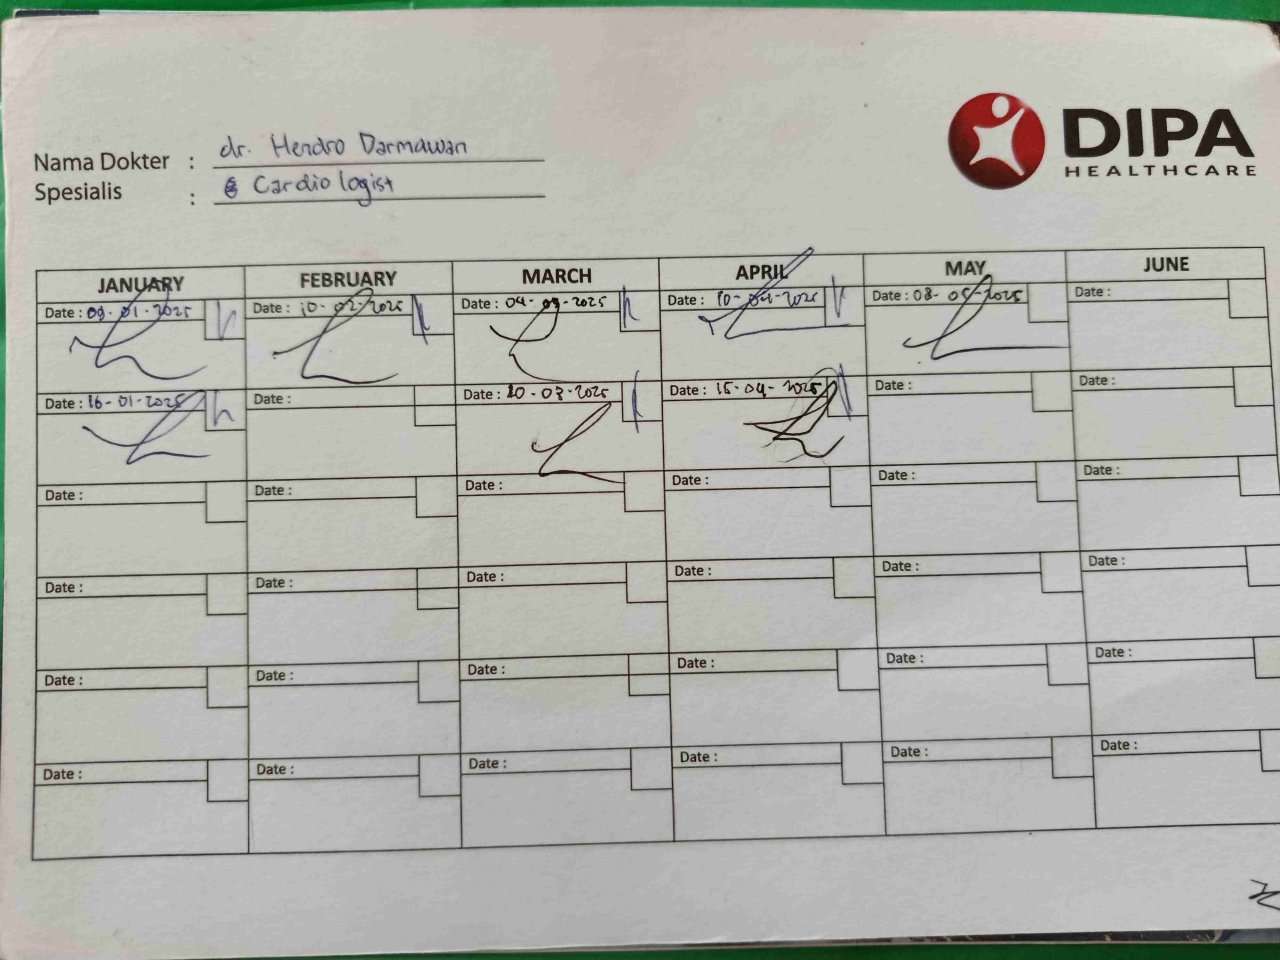 DIPA
HEALTHCARE
Nama Dokter : dr. Hendro Darmawan
Spesialis : Cardiologist
JANUARY FEBRUARY MARCH APRIL MAY JUNE
Date : 09-01-2025 Date : 10-02-2025 Date : 04-03-2025 Date : 10-04-2025 Date : 08-05-2025 Date :
Date : 16-01-2025 Date : Date : 20-03-2025 Date : 15-04-2025 Date : Date :
Date : Date : Date : Date : Date : Date :
Date : Date : Date : Date : Date : Date :
Date : Date : Date : Date : Date : Date :
Date : Date : Date : Date : Date : Date :